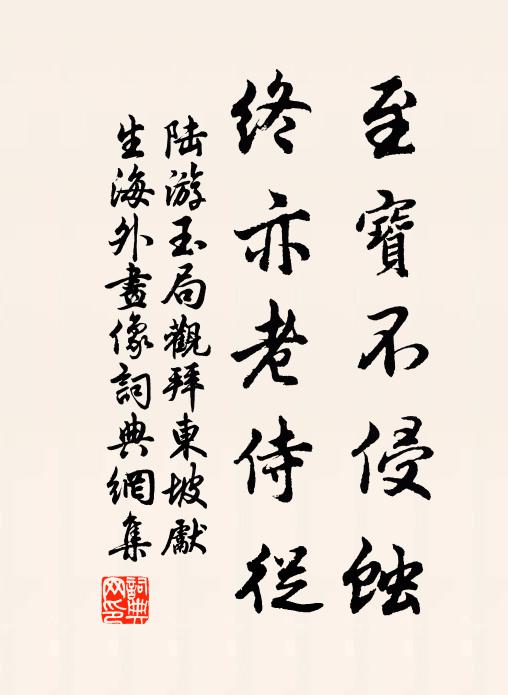 至寶不侵蝕
終亦老侍從
陆游玉局觀拜東坡獻
生海外畫像詞典網集
詞典網印